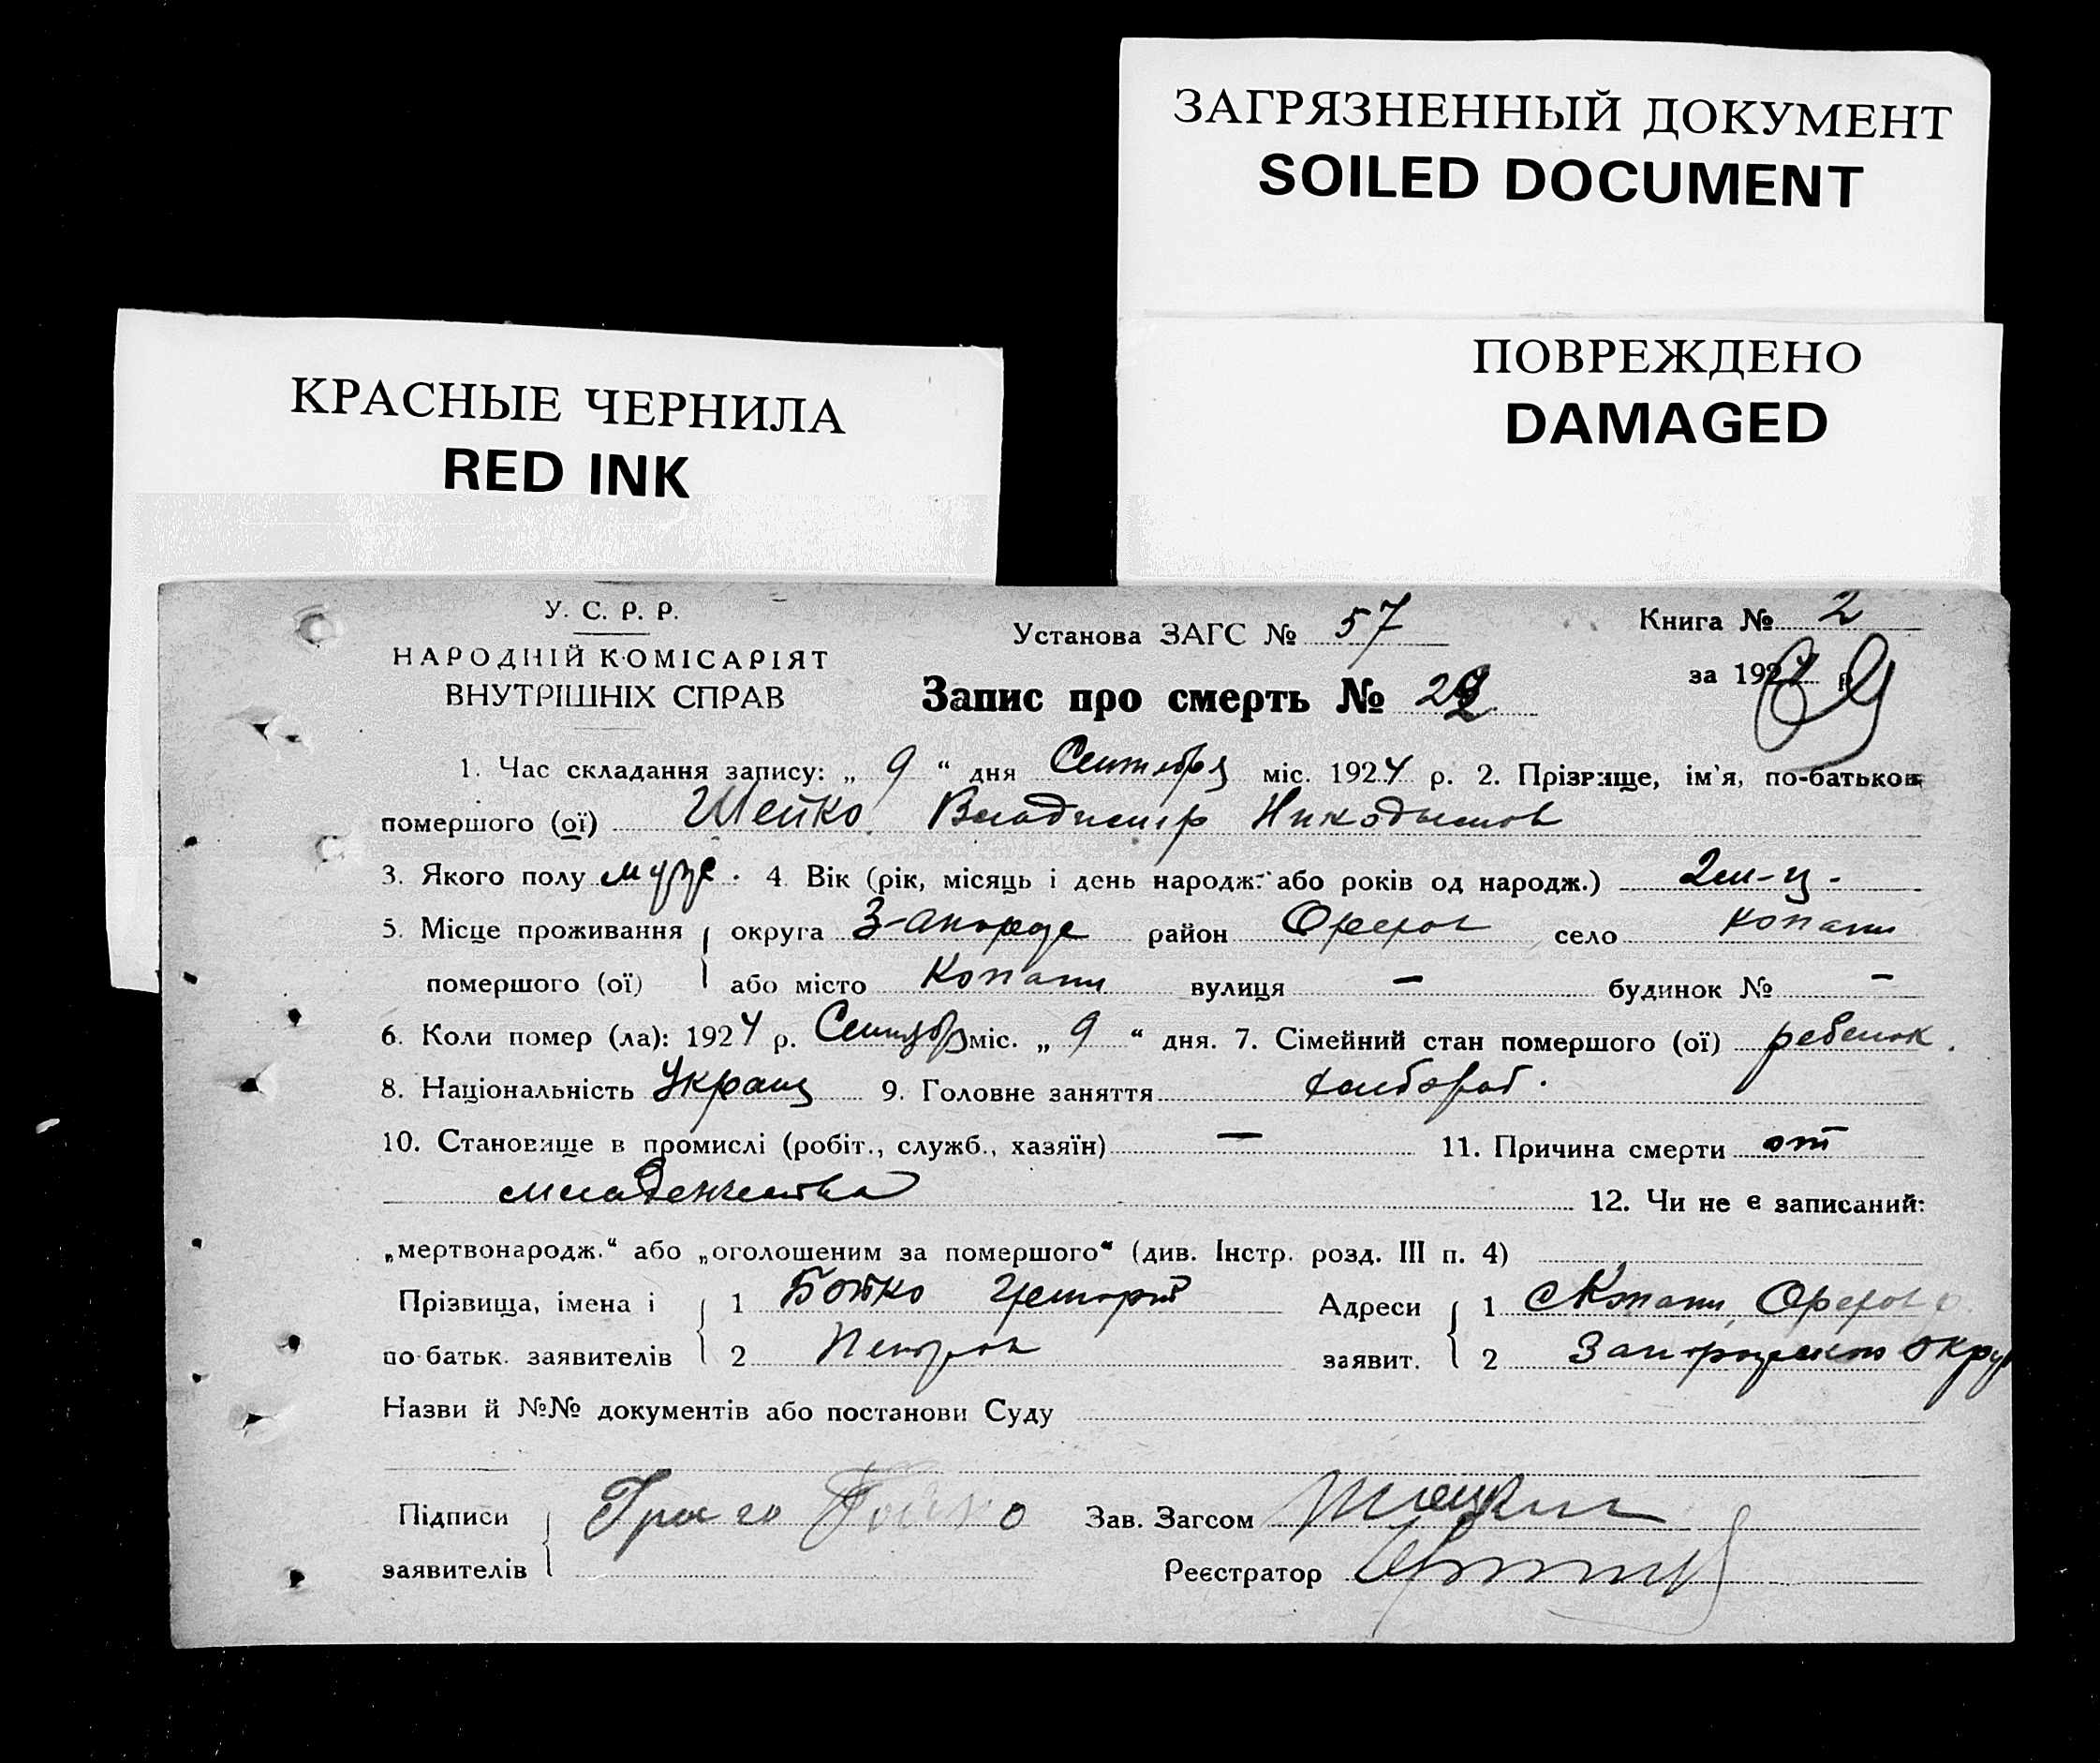 ЗАГРЯЗНЕННЫЙ ДОКУМЕНТ
SOILED DOCUMENT
ПОВРЕЖДЕНО
DAMAGED
КРАСНЫЕ ЧЕРНИЛА
RED INK
У. С. Р. Р.
НАРОДНІЙ КОМІСАРІЯТ
ВНУТРІШНІХ СПРАВ
Установа ЗАГС № 57
Книга № 2
за 1924 р.
69
Запис про смерть №
1. Час складання запису: „ 9 “ дня Сентября міс. 1924 р. 2. Прізвище, ім'я, по-батькові
помершого (ої) Шейко Владимир Никодимов
3. Якого полу муж. 4. Вік (рік, місяць і день народж. або років од народж.) 2 м-ц.
5. Місце проживання округа Запорож район Орехов село Копани
помершого (ої) або місто Копани вулиця — будинок № —
6. Коли помер (ла): 1924 р. Сентябр міс. „ 9 “ дня. 7. Сімейний стан помершого (ої) ребенок.
8. Національність Украин 9. Головне заняття хлебороб.
10. Становище в промислі (робіт., служб., хазяїн) — 11. Причина смерти от
младенчества 12. Чи не є записаний:
„мертвонародж.“ або „оголошеним за помершого“ (див. Інстр. розд. III п. 4)
Прізвища, імена і 1 Бойко Григорий Адреси 1 с Копани, Орехов
по батьк. заявителів 2 Петров заявит. 2 Запорожского окру
Назви й №№ документів або постанови Суду
Підписи Бойко Зав. Загсом
заявителів Реєстратор